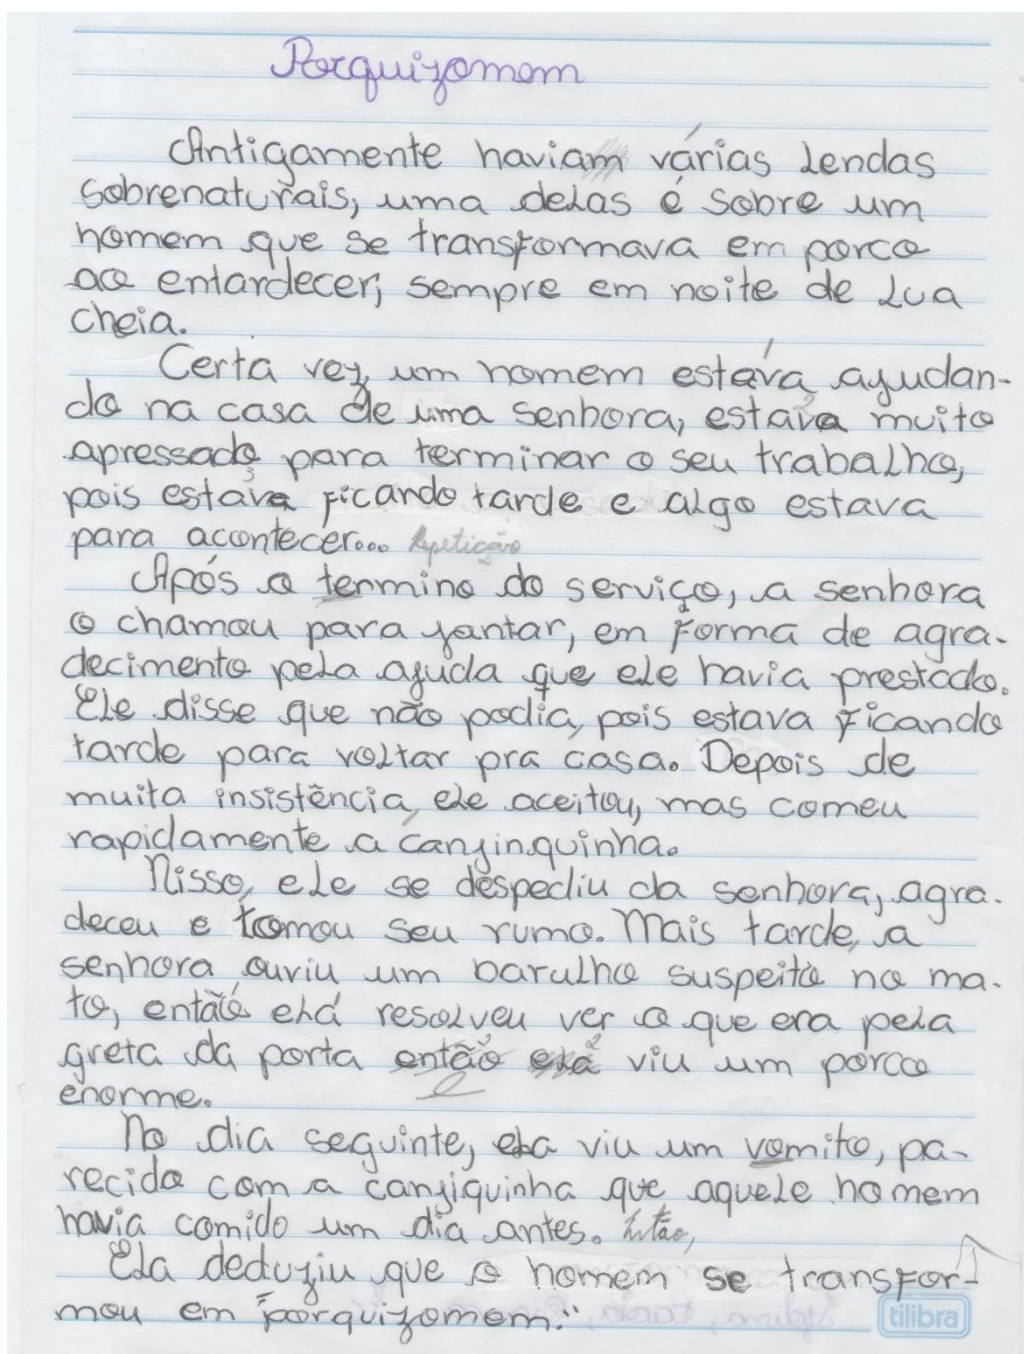 Porquizomem
Antigamente haviam várias lendas
sobrenaturais, uma delas é sobre um
homem que se transformava em porco
ao entardecer, sempre em noite de lua
cheia.
Certa vez, um homem estava ajudan-
do na casa de uma senhora, estava muito
apressado para terminar o seu trabalho,
pois estava ficando tarde e algo estava
para acontecer... Repetição
Após o termino do serviço, a senhora
o chamou para jantar, em forma de agra-
decimento pela ajuda que ele havia prestado.
Ele disse que não podia, pois estava ficando
tarde para voltar pra casa. Depois de
muita insistência, ele aceitou, mas comeu
rapidamente a canjinquinha.
Nisso, ele se despediu da senhora, agra-
deceu e tomou seu rumo. Mais tarde, a
senhora ouviu um barulho suspeito no ma-
to, então ela resolveu ver o que era pela
greta da porta então ela viu um porco
e
enorme.
No dia seguinte, ela viu um vomito, pa-
recido com a canjiquinha que aquele homem
havia comido um dia antes. Então,
Ela deduziu que o homem se transfor-
mou em "porquizomem."
tilibra